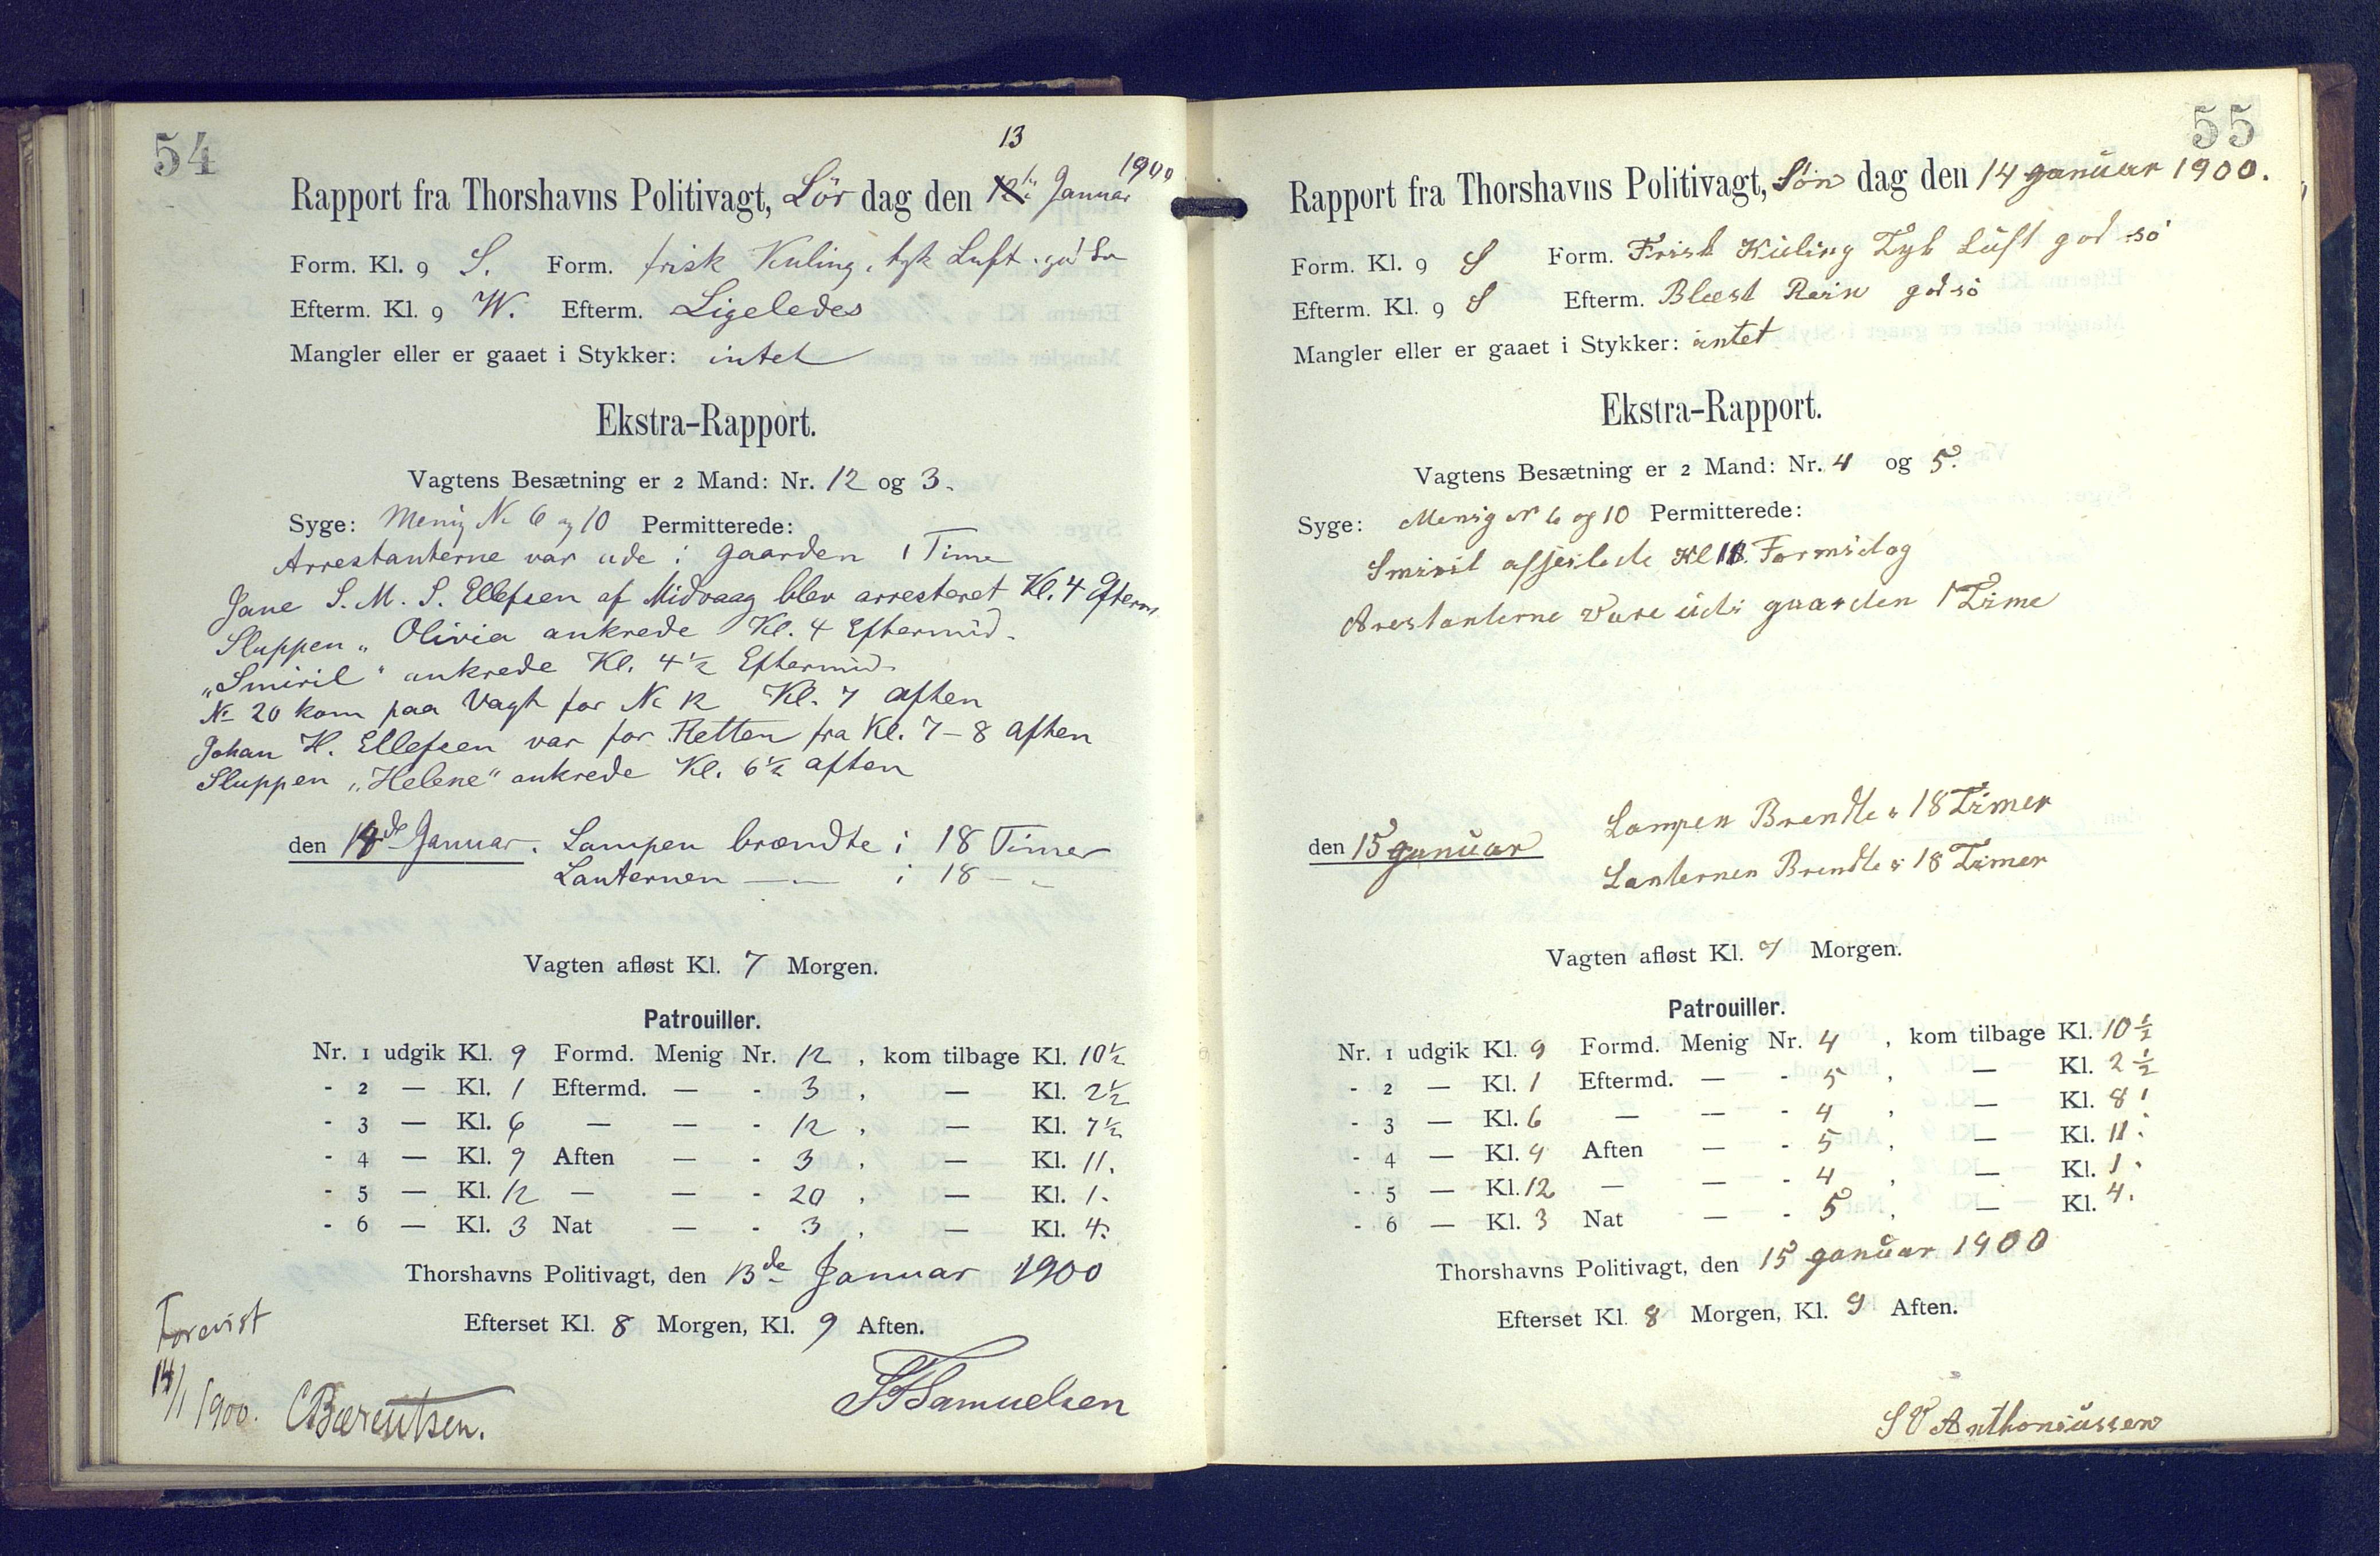 54
13
Rapport fra Thorshavns Politivagt, Lör dag den 12te Januar 1900
Form. Kl. 9 S. Form. frisk Kuling, tyk Luft. god Sø
Efterm. Kl. 9 W. Efterm. Ligeledes
Mangler eller er gaaet i Stykker: intet
Ekstra-Rapport.
Vagtens Besætning er 2 Mand: Nr. 12 og 3.
Syge: Menig No 6 og 10 Permitterede:
Arrestanterne var ude i gaarden 1 Time
Jane S. M. S. Ellefsen af Midvaag blev arresteret Kl. 4 Efterm.
Sluppen „Olivia ankrede Kl. 4 Eftermid.
„Smiril“ ankrede Kl. 4½ Eftermid.
No 20 kom paa Vagt for No 12 Kl. 7 aften
Johan H. Ellefsen var for Retten fra Kl. 7-8 aften
Sluppen „Helene“ ankrede Kl. 6½ aften
den 14de Januar. Lampen brændte i 18 Timer
Lanternen — „ — i 18 — „
Vagten afløst Kl. 7 Morgen.
Patrouiller.
Nr. 1 udgik Kl. 9 Formd. Menig Nr. 12, kom tilbage Kl. 10½
- 2 — Kl. 1 Eftermd. — - 3, — Kl. 2½
- 3 — Kl. 6 — — - 12, — Kl. 7½
- 4 — Kl. 9 Aften — - 3, — Kl. 11.
- 5 — Kl. 12 — — - 20, — Kl. 1.
- 6 — Kl. 3 Nat — - 3, — Kl. 4.
Thorshavns Politivagt, den 13de Januar 1900
Efterset Kl. 8 Morgen, Kl. 9 Aften.
Forevist
14/1 1900. CBærentsen.
Samuelsen
55
Rapport fra Thorshavns Politivagt, Søn dag den 14 Januar 1900.
Form. Kl. 9 S Form. Frisk Kuling Tyk Luft god sö
Efterm. Kl. 9 S Efterm. Blæst Rein god sö
Mangler eller er gaaet i Stykker: intet
Ekstra-Rapport.
Vagtens Besætning er 2 Mand: Nr. 4 og 5.
Syge: Menig No 6 og 10 Permitterede:
Smiril afseilede Kl Formidag
Arestanterne Vare udi gaarden 1 Time
den 15 Januar Lampen Brendte i 18 Timer
Lanternen Brendte i 18 Timer
Vagten afløst Kl. 7 Morgen.
Patrouiller.
Nr. 1 udgik Kl. 9 Formd. Menig Nr. 4, kom tilbage Kl. 10½
- 2 — Kl. 1 Eftermd. — - 5, — Kl. 2½
- 3 — Kl. 6 — — - 4, — Kl. 8.
- 4 — Kl. 9 Aften — - 5, — Kl. 11.
- 5 — Kl. 12 — — - 4, — Kl. 1.
- 6 — Kl. 3 Nat — - 5, — Kl. 4.
Thorshavns Politivagt, den 15 Januar 1900
Efterset Kl. 8 Morgen, Kl. 9 Aften.
S V Anthoniussen